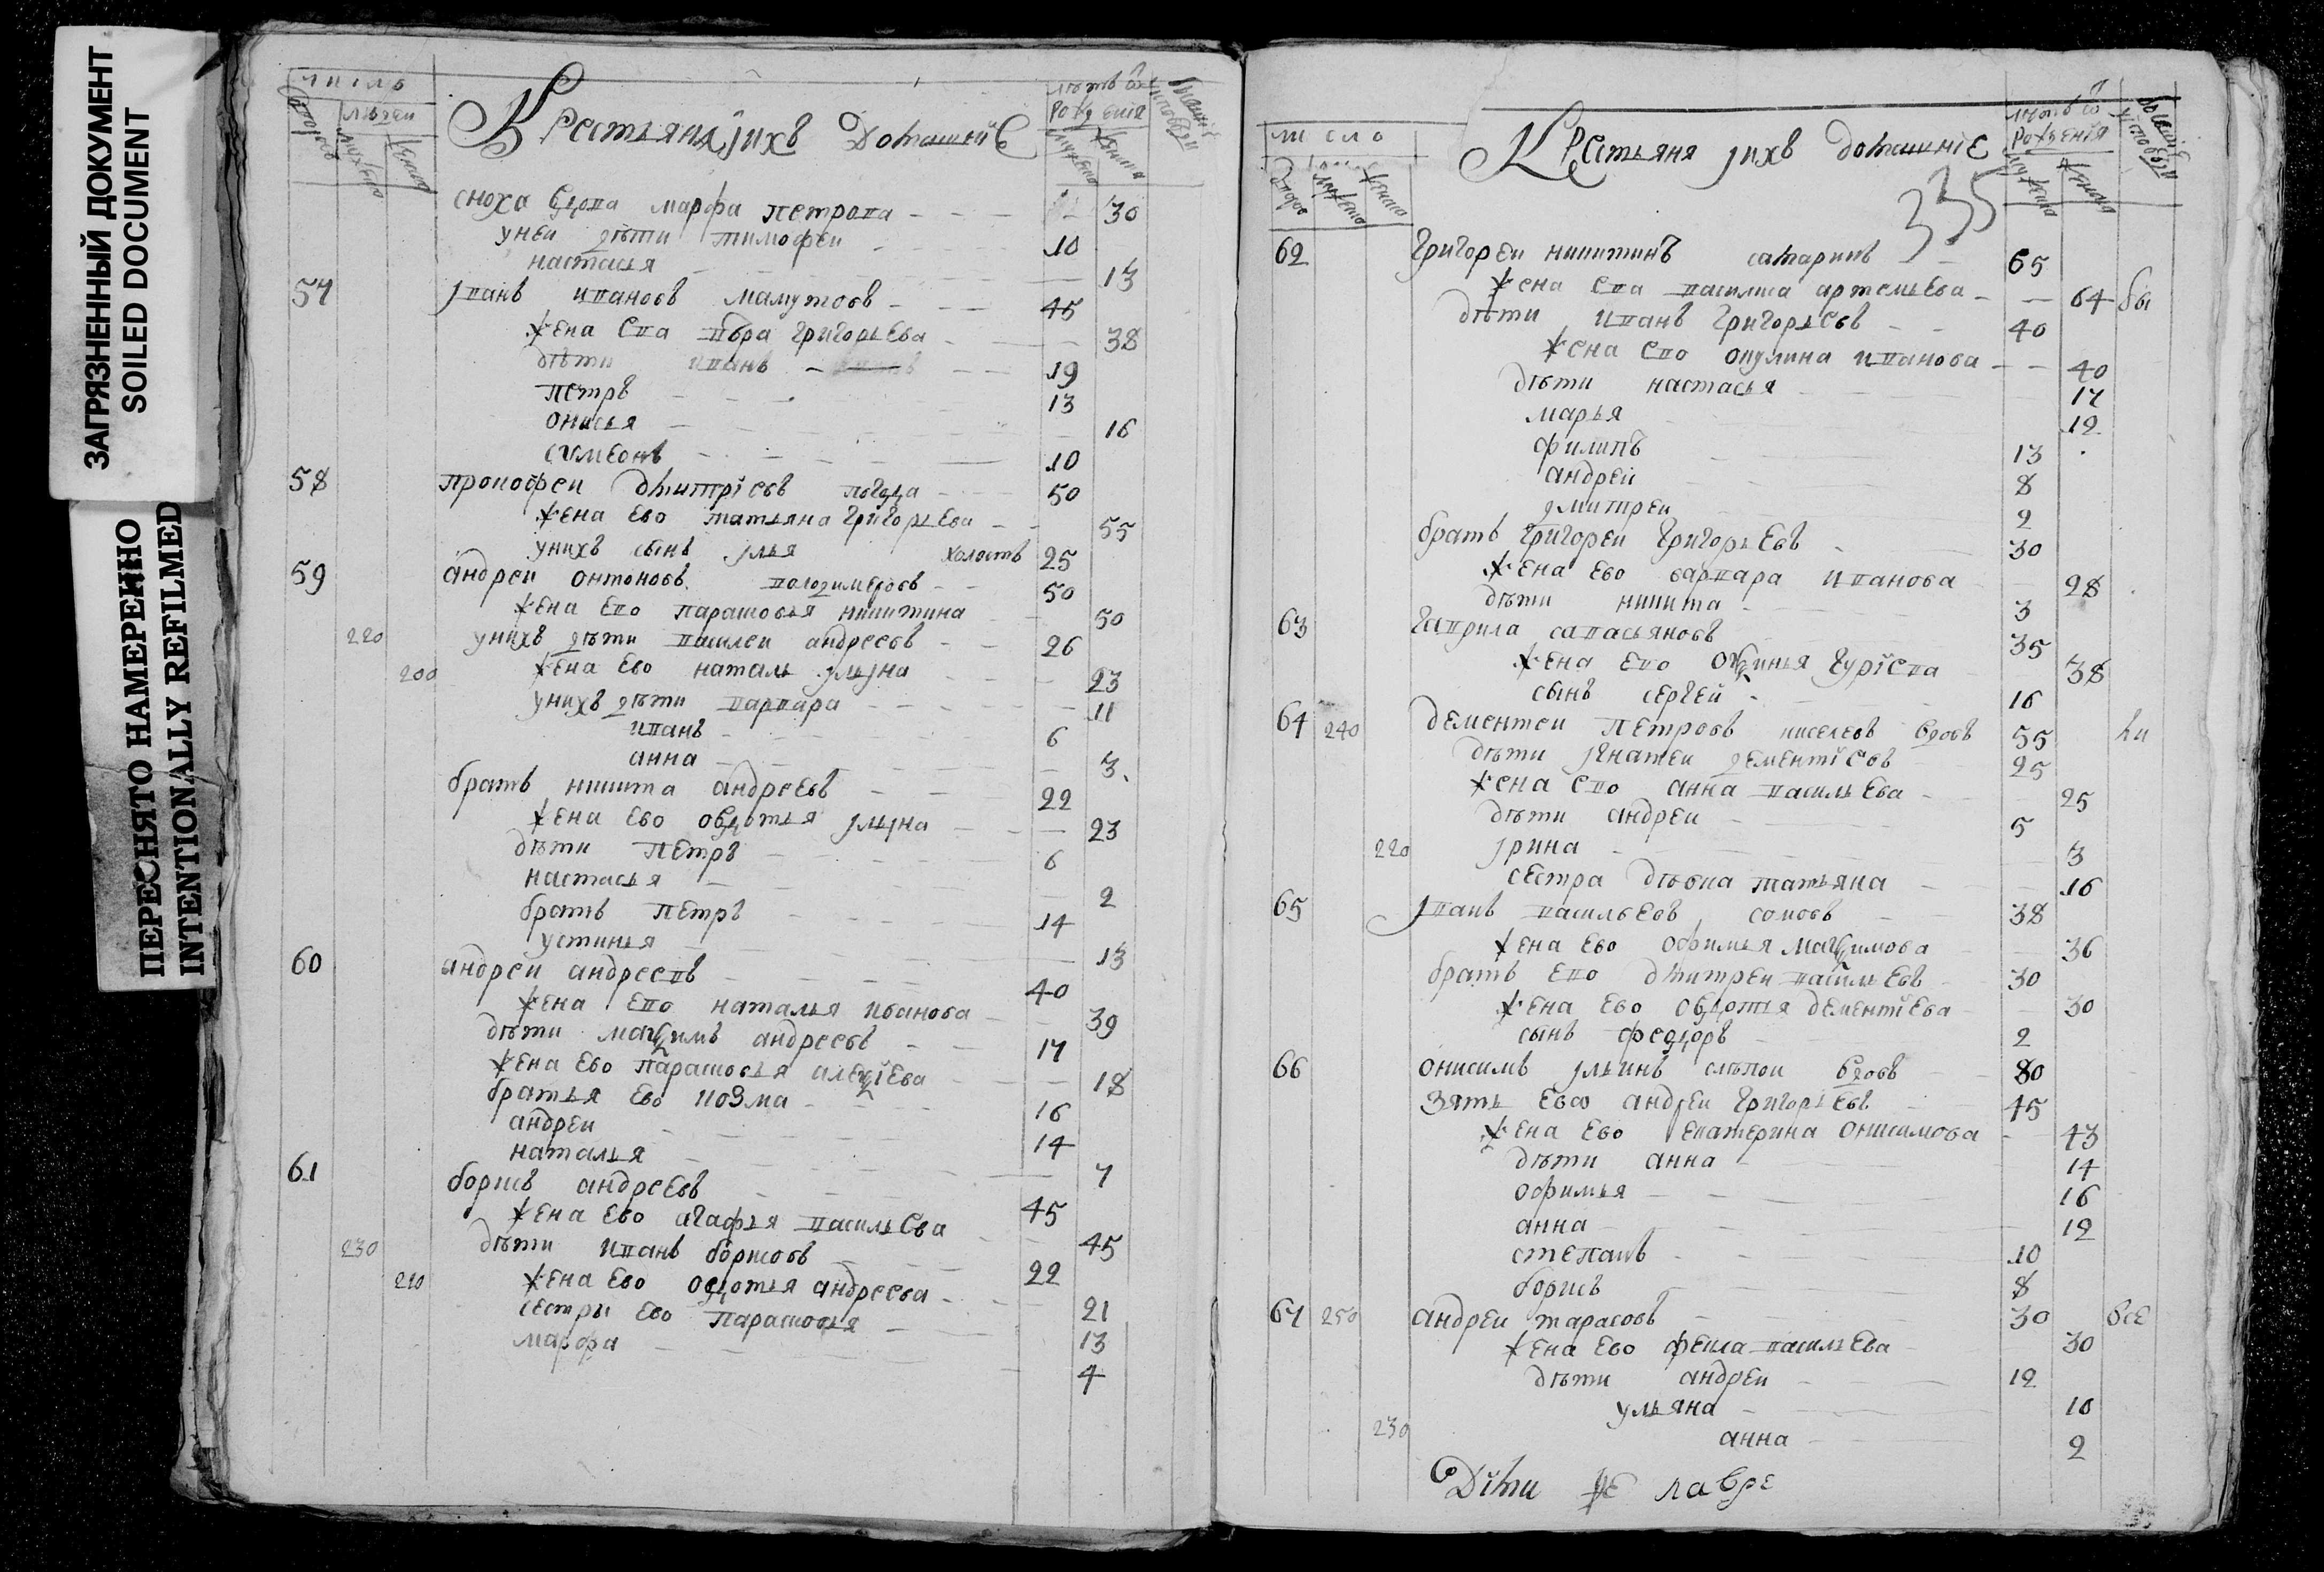 ЗАГРЯЗНЕННЫЙ ДОКУМЕНТ
SOILED DOCUMENT
ПЕРЕСНЯТО НАМЕРЕННО
INTENTIONALLY REFILMED
число
людей
лѣтъ ѿ рожденія
Крестьяня јихъ Домашнѣ
сноха вдова марфа петрова 30
унеи дѣти тимофеи 10
настасья 13
57 јванъ ивановъ мамутовъ 45
жена ево вѣра григорьева 38
дѣти иванъ 19
петръ 13
онисья 16
сѵмеонъ 10
58 прокофеи дмитріевъ 50
жена ево татьяна григорьева 55
унихъ сынъ јлья холостъ 25
59 андреи онтоновъ володимеровъ 50
жена ево парасковья никитина 50
220 унихъ дѣти василеи андреевъ 26
200 жена ево наталь јльјна 23
унихъ дѣти варвара 11
иванъ 6
анна 3
братъ никита андреевъ 22
жена ево овдотья јльјна 23
дѣти петръ 6
настасья 2
братъ петръ 14
устинья 13
60 андреи андреевъ 40
жена ево наталья иванова 39
дѣти маѯимъ андреевъ 17
жена ево парасковья алеѯіева 18
братья ево козма 16
андреи 14
наталья 7
61 борисъ андреевъ 45
жена ево агафья васильева 45
230 дѣти иванъ борисовъ 22
210 жена ево овдотья андреева 21
сестры ево парасковья 13
марфа 4
число
лѣтъ ѿ рожденія
Крестьяня јихъ домашніе
335
62 григореи никитинъ 65
жена ева василиса артемьева 64 бы
дѣти иванъ григорьевъ 40
жена ево окулина иванова 40
дѣти настасья 17
марья 12
филипъ 13
андреи 8
дмитреи 2
братъ григореи григорьевъ 30
жена ево варвара иванова 28
дѣти никита 3
63 гаврила савасьяновъ 35
жена ево оѯинья гуріева 38
сынъ сергеи 16
64 240 дементеи петровъ киселевъ вдовъ 55
дѣти јгнатеи дементіевъ 25
жена ево анна васильева 25
дѣти андреи 5
220 јрина 3
сестра дѣвка татьяна 16
65 јванъ васильевъ сомовъ 38
жена ево офимья маѯимова 36
братъ ево дмитреи васильевъ 30
жена ево овдотья дементіева 30
сынъ федоръ 2
66 онисимъ јльинъ слѣпои вдовъ 80
зять ево андреи григорьевъ 45
жена ево екатерина онисимова 43
дѣти анна 14
офимья 16
анна 12
степанъ 10
борисъ 8
67 250 андреи тарасовъ 30 все
жена ево фекла васильева 30
дѣти андреи 12
ульяна 10
230 анна 2